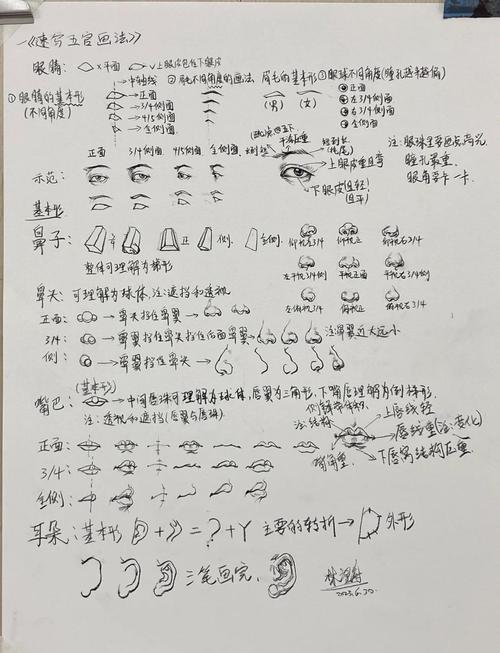 《速写五官画法》
眼睛: ×平面 ✓上眼皮包住下眼皮
①眼睛的基本形(不同角度)
中轴线
正面
3/4侧面
4/5侧面
全侧面
②眉毛不同角度的画法
眉毛的基本形
(男) (女)
③眼球不同角度(瞳孔越来越偏)
正面
左3/4侧面
右3/4侧面
全侧面
正面 3/4侧面 4/5侧面 全侧面
示范:
基本形
上眼皮重且弯
下眼皮(且轻)(且平)
注:眼球里要画点高光
瞳孔最重.
眼角要卡一卡.
鼻子: 正 侧. 全侧.
整体可理解为梯形
仰视左3/4 仰视正 仰视右3/4
左平视3/4 平视正面 平视右3/4
左俯视3/4 俯视正 俯视右3/4
鼻头:可理解为球体,注:遮挡和透视
正面: → 鼻头挡住鼻翼 →
3/4: → 鼻翼挡住鼻头挡住后面鼻翼 → 注:鼻翼近大远小
侧: → 鼻翼挡住鼻头 →
嘴巴: (基本形) → 中间唇珠可理解为球体,唇翼为三角形,下嘴唇理解为倒梯形.
注:透视和遮挡(唇翼与唇珠).
注:结构
上唇线轻
唇线重(注:变化)
下唇窝结构压重.
嘴角重.
正面:
3/4:
全侧:
耳朵:基本形 + = ? + Y 主要的转折 → 外形
三笔画完.
2023.6.30.